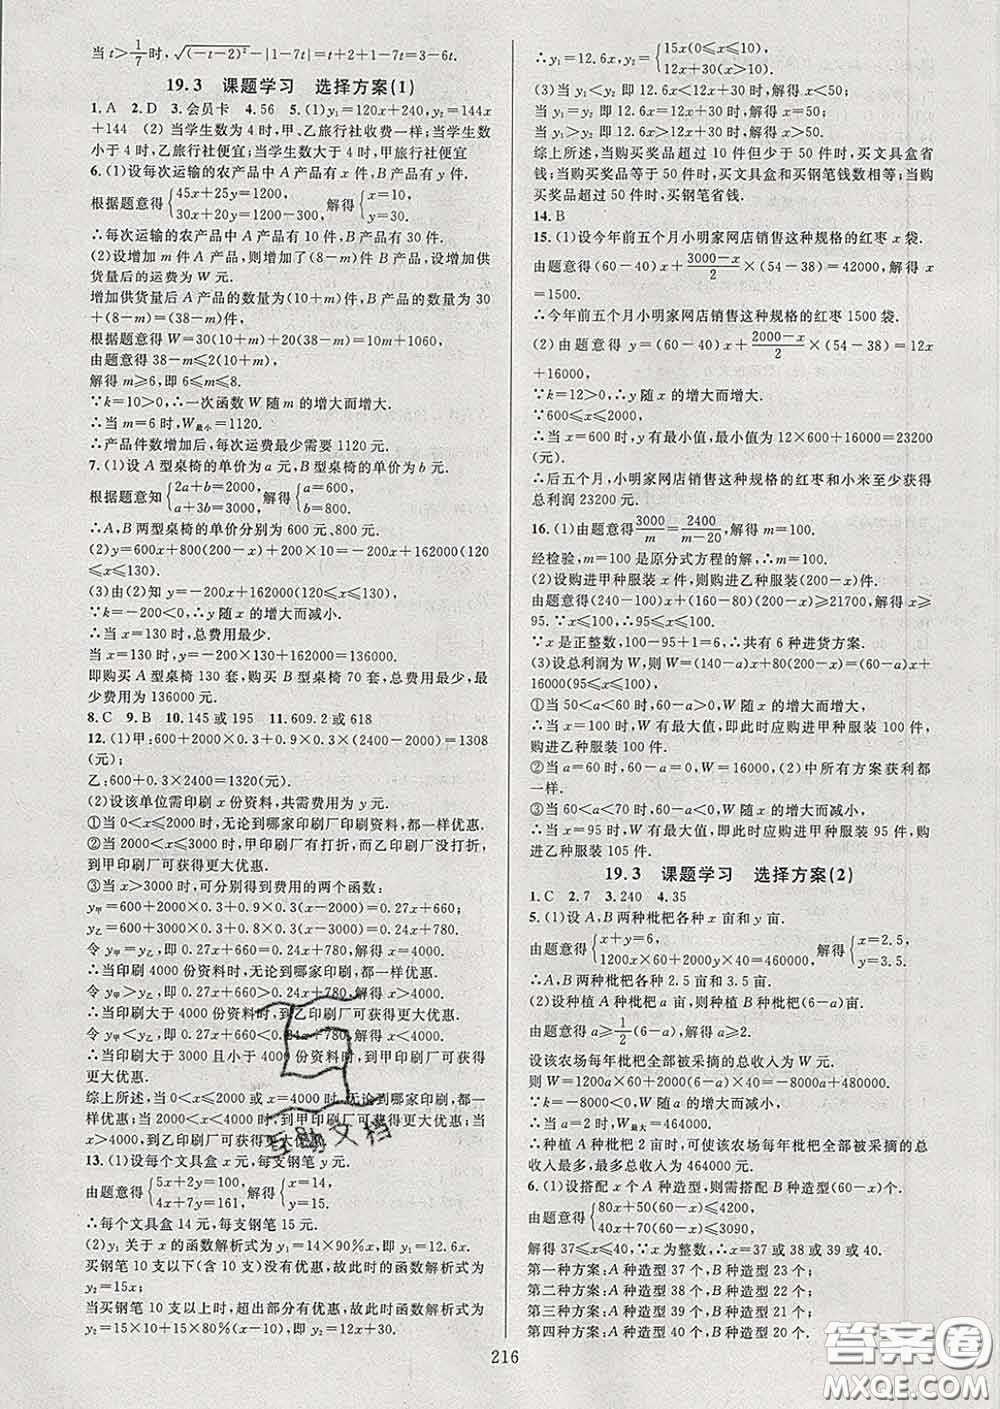 当t>1/7时,√(-t-2)²-|1-7t|=t+2+1-7t=3-6t.
19.3 课题学习 选择方案(1)
1.A 2.D 3.会员卡 4.56 5.(1)y₁=120x+240,y₂=144x
+144 (2)当学生数为4时,甲、乙旅行社收费一样;当学生数
小于4时,乙旅行社便宜;当学生数大于4时,甲旅行社便宜
6.(1)设每次运输的农产品中A产品有x件,B产品有y件.
根据题意得{45x+25y=1200, 30x+20y=1200-300, 解得{x=10, y=30.
∴每次运输的农产品中A产品有10件,B产品有30件.
(2)设增加m件A产品,则增加了(8-m)件B产品,设增加
供货量后的运费为W元.
增加供货量后A产品的数量为(10+m)件,B产品的数量为30
+(8-m)=(38-m)件,
根据题意得W=30(10+m)+20(38-m)=10m+1060,
由题意得38-m≤2(10+m),
解得m≥6,即6≤m≤8.
∵k=10>0,∴一次函数W随m的增大而增大.
∴当m=6时,W最小=1120.
∴产品件数增加后,每次运费最少需要1120元.
7.(1)设A型桌椅的单价为a元,B型桌椅的单价为b元.
根据题意知{2a+b=2000, a+3b=3000, 解得{a=600, b=800.
∴A,B两型桌椅的单价分别为600元,800元.
(2)y=600x+800(200-x)+200×10=-200x+162000(120
≤x≤130).
(3)由(2)知y=-200x+162000(120≤x≤130).
∵k=-200<0,∴y随x的增大而减小.
∴当x=130时,总费用最少.
当x=130时,y=-200×130+162000=136000.
即购买A型桌椅130套,购买B型桌椅70套,总费用最少,最
少费用为136000元.
8.C 9.B 10.145或195 11.609.2或618
12.(1)甲:600+2000×0.3+0.3×90%×(2400-2000)=1308
(元);
乙:600+0.3×2400=1320(元).
(2)设该单位需印刷x份资料,共需费用为y元.
①当0<x≤2000时,无论到哪家印刷厂印刷资料,都一样优惠.
②当2000<x≤3000时,甲印刷厂有打折,而乙印刷厂没打折,
到甲印刷厂可获得更大优惠.
③当x>3000时,可分别得到两个函数:
y甲=600+2000×0.3+0.3×90%(x-2000)=0.27x+660,
y乙=600+3000×0.3+0.3×80%(x-3000)=0.24x+780,
令y甲=y乙,即0.27x+660=0.24x+780,解得x=4000.
∴当印刷4000份资料时,无论到哪家印刷,都一样优惠.
令y甲>y乙,即0.27x+660>0.24x+780,解得x>4000.
∴当印刷大于4000份资料时,到乙印刷厂可获得更大优惠.
令y甲<y乙,即0.27x+660<0.24x+780,解得x<4000.
∴当印刷大于3000且小于4000份资料时,到甲印刷厂可获得
更大优惠.
综上所述,当0<x≤2000或x=4000时,无论到哪家印刷厂都
一样优惠;当2000<x<4000时,到甲印刷厂可获得更大优惠;当
x>4000时,到乙印刷厂可获得更大优惠.
13.(1)设每个文具盒x元,每支钢笔y元.
由题意得{5x+2y=100, 4x+7y=161, 解得{x=14, y=15.
∴每个文具盒14元,每支钢笔15元.
(2)y₁关于x的函数解析式为y₁=14×90%x,即y₁=12.6x.
买钢笔10支以下(含10支)没有优惠,故此时的函数解析式为
y₂=15x;
当买钢笔10支以上时,超出部分有优惠,故此时函数解析式为
y₂=15×10+15×80%(x-10),即y₂=12x+30.
∴y₁=12.6x,y₂={15x(0≤x≤10), 12x+30(x>10).
(3)当y₁<y₂即12.6x<12x+30时,解得x<50;
当y₁=y₂即12.6x=12x+30时,解得x=50;
当y₁>y₂即12.6x>12x+30时,解得x>50.
综上所述,当购买奖品超过10件但少于50件时,买文具盒省
钱;当购买奖品等于50件时,买文具盒和买钢笔钱数相等;当
购买奖品超过50件时,买钢笔省钱.
14.B
15.(1)设今年前五个月小明家网店销售这种规格的红枣x袋.
由题意得(60-40)x+(3000-x)/2×(54-38)=42000,解得x
=1500.
∴今年前五个月小明家网店销售这种规格的红枣1500袋.
(2)由题意得y=(60-40)x+(2000-x)/2×(54-38)=12x
+16000,
∵k=12>0,∴y随x的增大而增大.
∵600≤x≤2000,
∴当x=600时,y有最小值,最小值为12×600+16000=23200
(元).
∴后五个月,小明家网店销售这种规格的红枣和小米至少获得
总利润23200元.
16.(1)由题意得3000/m=2400/(m-20),解得m=100.
经检验,m=100是原分式方程的解,∴m=100.
(2)设购进甲种服装x件,则购进乙种服装(200-x)件.
由题意得(240-100)x+(160-80)(200-x)≥21700,解得x≥
95.∵x≤100,∴95≤x≤100.
∵x是正整数,100-95+1=6,∴共有6种进货方案.
(3)设总利润为W,则W=(140-a)x+80(200-x)=(60-a)x+
16000(95≤x≤100).
①当50<a<60时,60-a>0,W随x的增大而增大,
∴当x=100时,W有最大值,即此时应购进甲种服装100件,
购进乙种服装100件.
②当a=60时,60-a=0,W=16000,(2)中所有方案获利都
一样.
③当60<a<70时,60-a<0,W随x的增大而减小,
∴当x=95时,W有最大值,即此时应购进甲种服装95件,购
进乙种服装105件.
19.3 课题学习 选择方案(2)
1.C 2.7 3.240 4.35
5.(1)设A,B两种枇杷各种x亩和y亩.
由题意得{x+y=6, 1200x×60+2000y×40=460000, 解得{x=2.5, y=3.5.
∴A,B两种枇杷各种2.5亩和3.5亩.
(2)设种植A种枇杷a亩,则种植B种枇杷(6-a)亩.
由题意得a≥1/2(6-a),解得a≥2.
设该农场每年枇杷全部被采摘的总收入为W元.
则W=1200a×60+2000(6-a)×40=-8000a+480000.
∵k=-8000<0,∴W随a的增大而减小.
∴当a=2时,W最大=464000.
∴种植A种枇杷2亩时,可使该农场每年枇杷全部被采摘的总
收入最多,最多总收入为464000元.
6.(1)设搭配x个A种造型,则需搭配B种造型(60-x)个.
由题意得{80x+50(60-x)≤4200, 40x+70(60-x)≤3090,
解得37≤x≤40,∵x为整数,∴x=37或38或39或40.
第一种方案:A种造型37个,B种造型23个;
第二种方案:A种造型38个,B种造型22个;
第三种方案:A种造型39个,B种造型21个;
第四种方案:A种造型40个,B种造型20个.
216
互助文档
答案圈
MXQE.COM